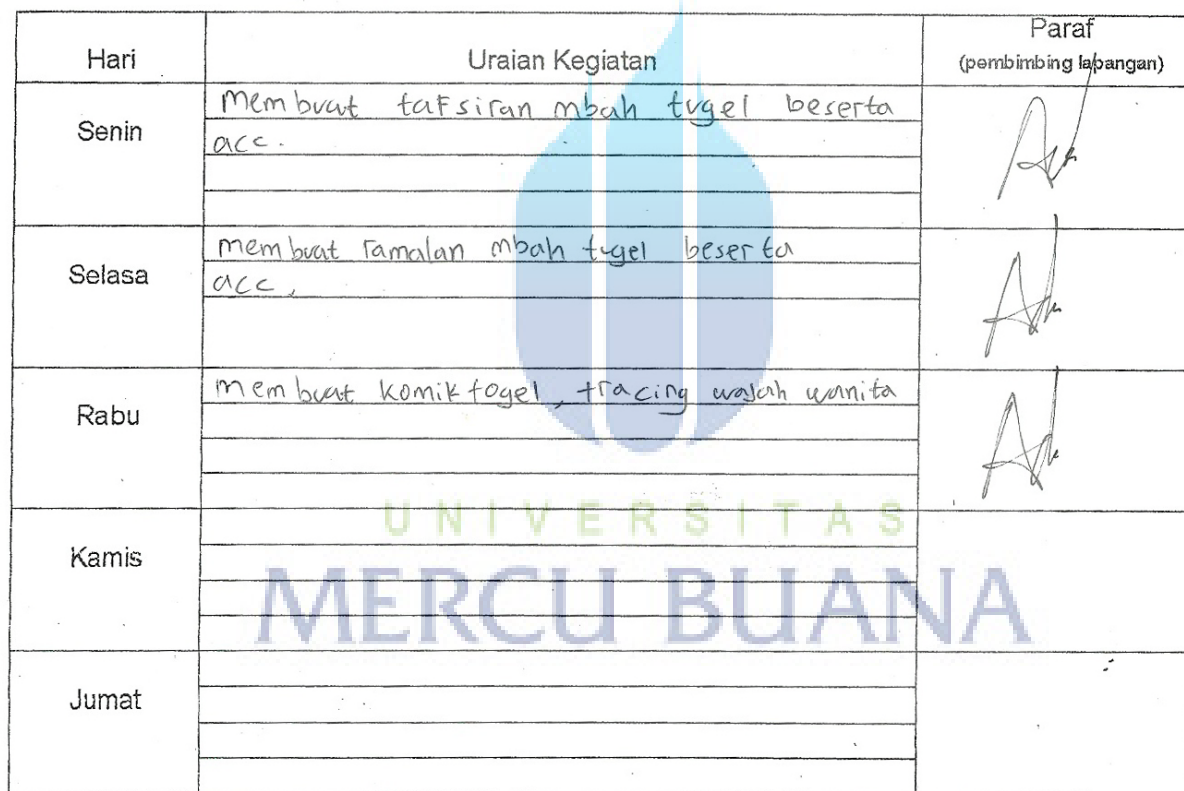 Hari Uraian Kegiatan Paraf
(pembimbing lapangan)
Senin
membuat tafsiran mbah tugel beserta
acc.
Selasa
membuat ramalan mbah tugel beserta
acc,
Rabu
membuat komik togel, tracing wajah wanita
UNIVERSITAS
Kamis
MERCU BUANA
Jumat